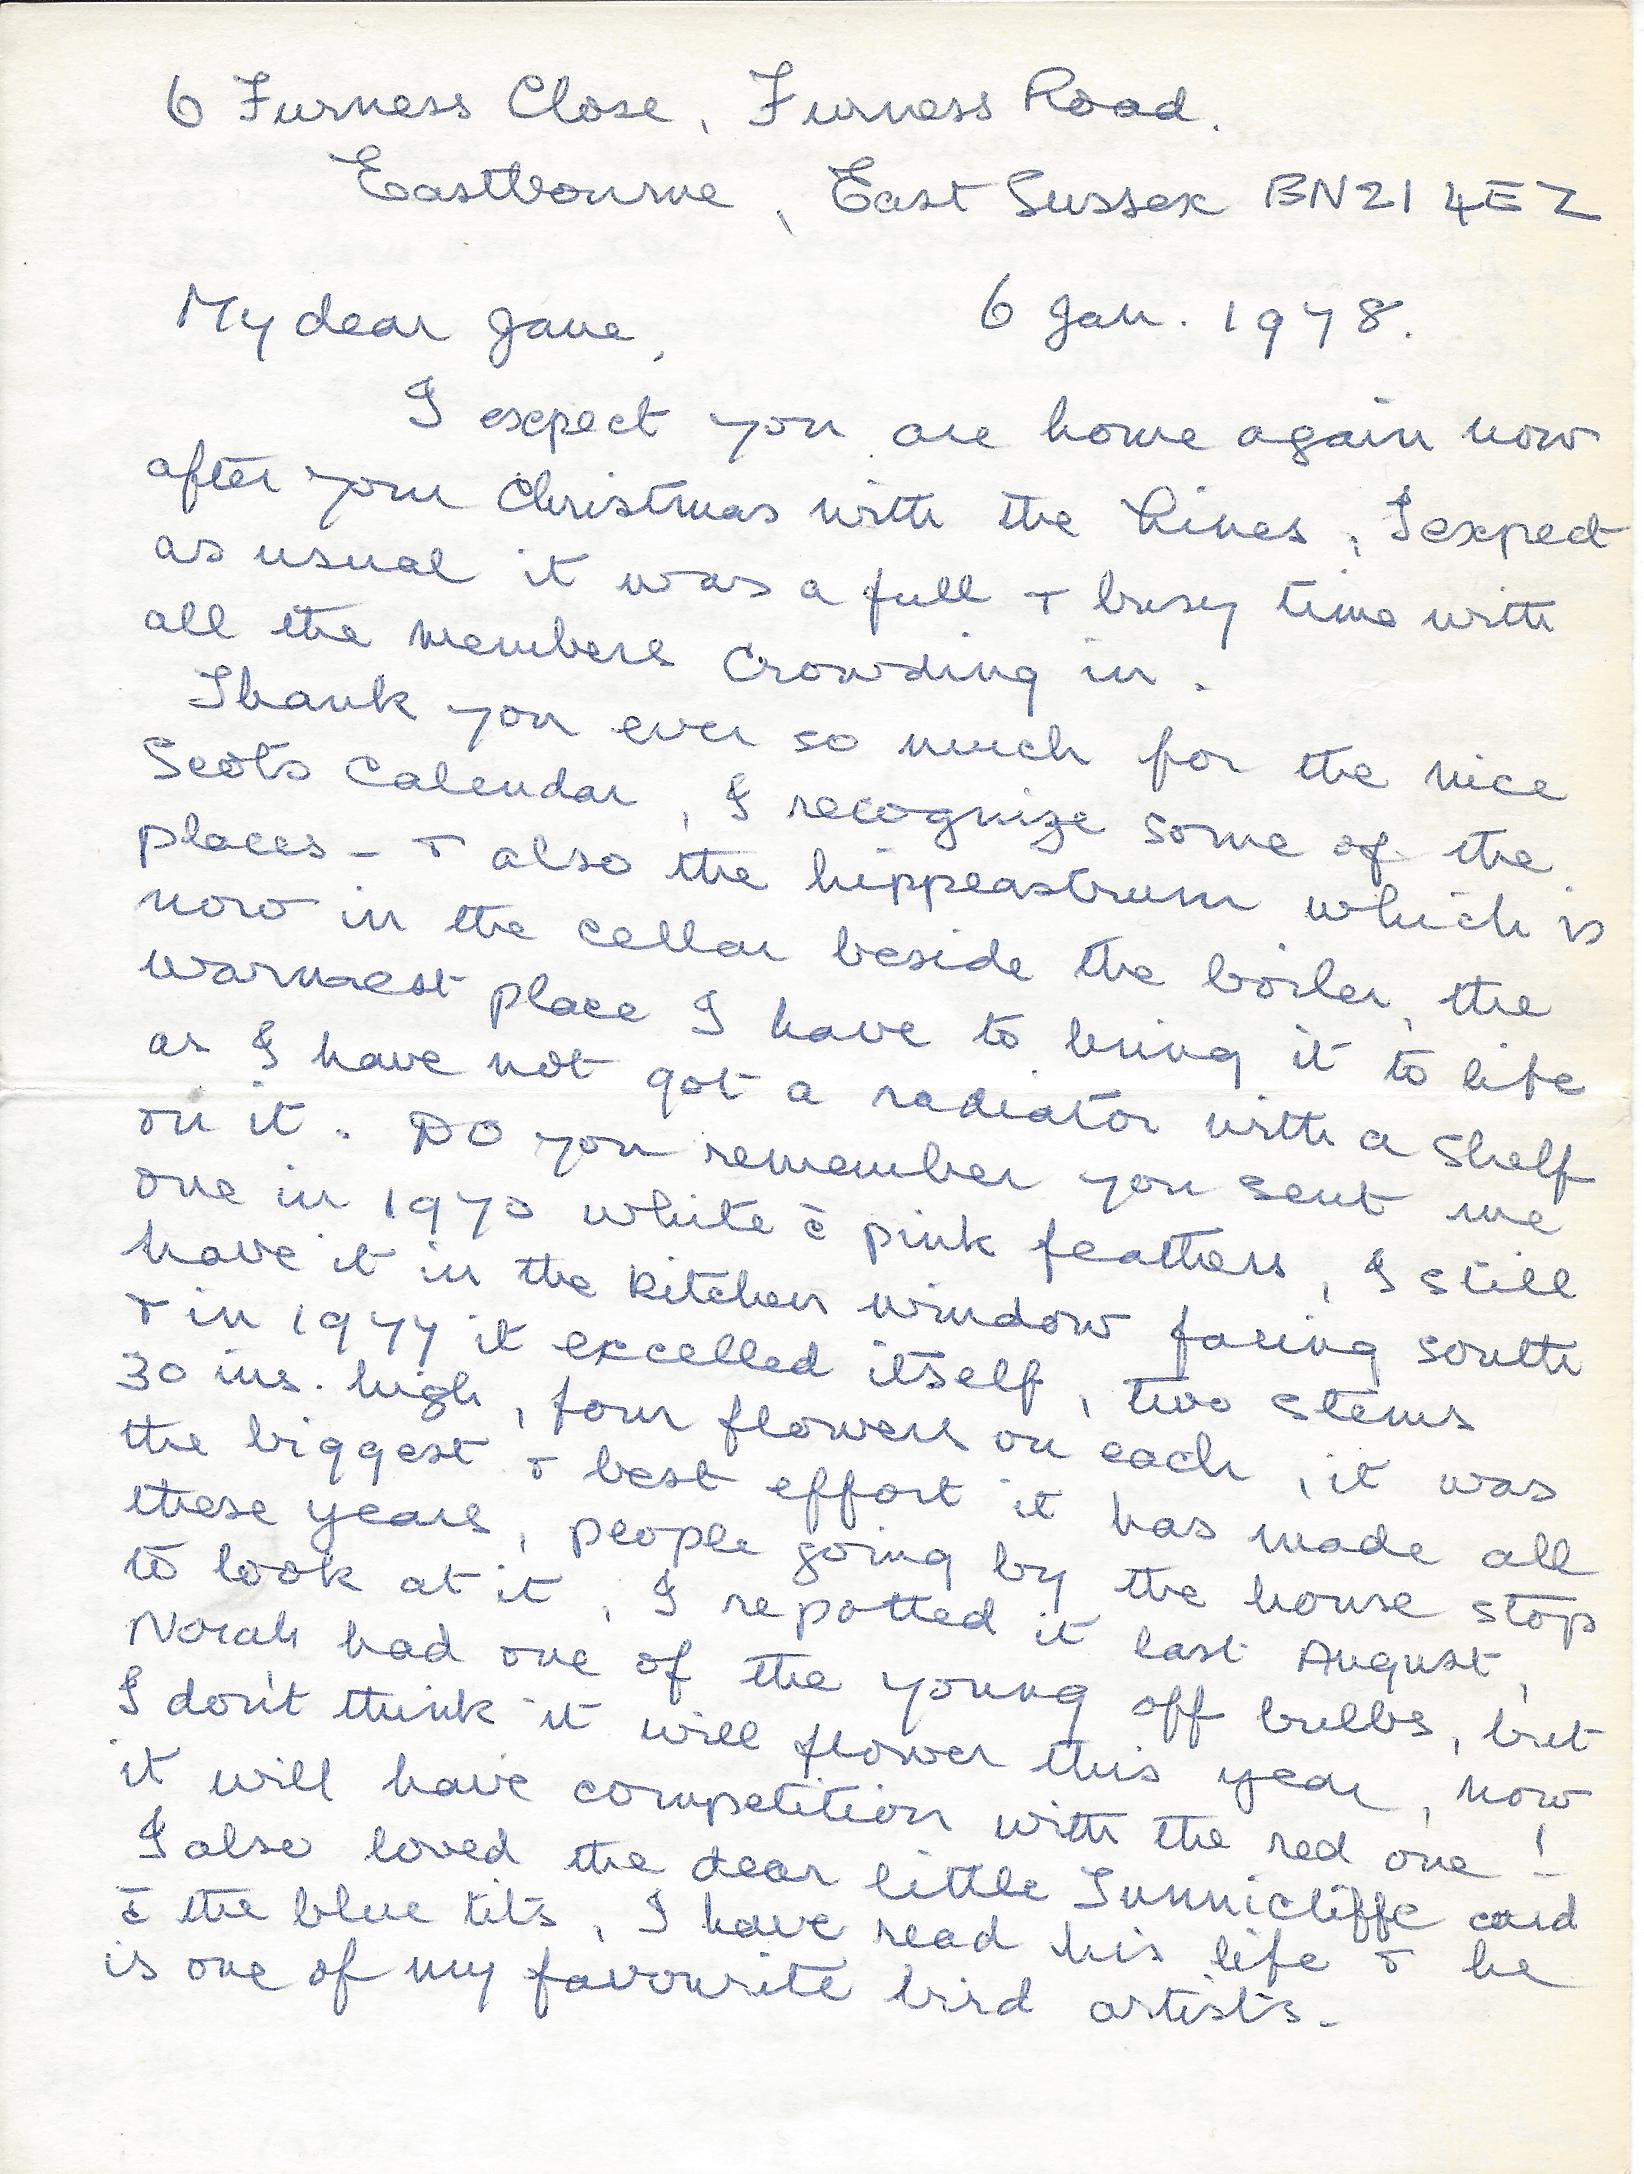 6 Furness Close, Furness Road.
Eastbourne, East Sussex BN21 4EZ
My dear Jane, 6 Jan. 1978.
I expect you are home again now
after your Christmas with the Lines, I expect
as usual it was a full & busy time with
all the members crowding in.
Thank you ever so much for the nice
Scots Calendar, I recognize some of the
places - & also the hippeastrum which is
now in the cellar beside the boiler, the
warmest place I have to bring it to life
as I have not got a radiator with a shelf
on it. Do you remember you sent me
one in 1970 white c̄ pink feathers, I still
have it in the kitchen window facing south
& in 1977 it excelled itself, two stems
30 ins. high, four flowers on each, it was
the biggest & best effort it has made all
these years, people going by the house stop
to look at it, I repotted it last August,
Norah had one of the young off bulbs, but
I don't think it will flower this year, now
it will have competition with the red one!
I also loved the dear little Tunnicliffe card
c̄ the blue tits, I have read his life & he
is one of my favourite bird artists.